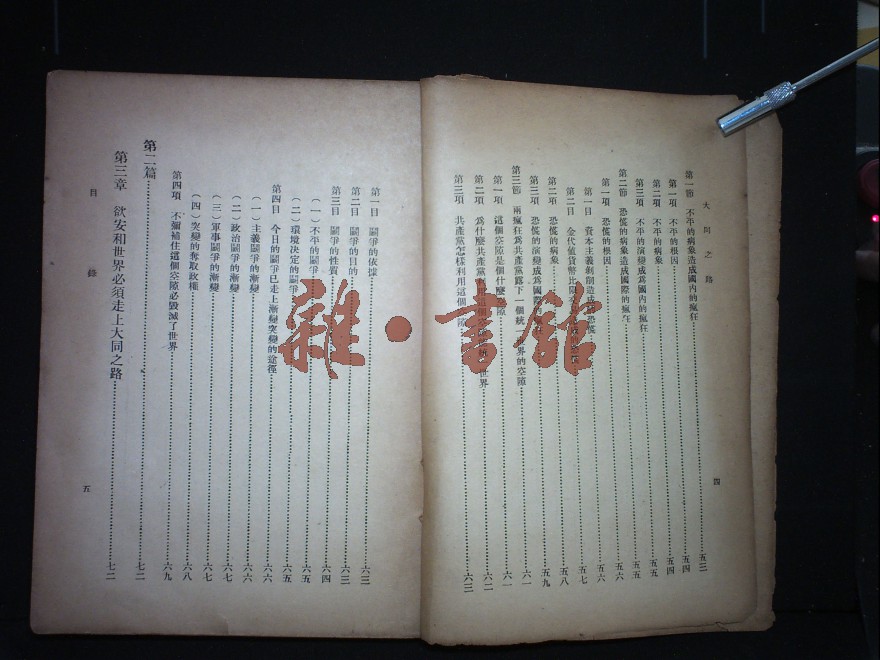 大同之路
第一節　不平的病象造成國內的瘋狂……五三
第一項　不平的根因……五四
第二項　不平的病象……五四
第三項　不平的演變成爲國內的瘋狂……五五
第二節　恐慌的病象造成國際的瘋狂……五六
第一項　恐慌的根因……五六
第一目　資本主義剝削造成的恐慌……五七
第二目　金代値貨幣比……五八
第二項　恐慌的病象……五九
第三項　恐慌的演變成爲國際的瘋狂……六一
第三節　兩瘋狂爲共產黨露下一個統一世界的空隙
第一項　這個空隙是個什麼空隙……六一
第二項　爲什麼共產黨……世界……六二
第三項　共產黨怎樣利用這個空隙……六三
四
第一目　鬭爭的依據……六三
第二目　鬭爭的目的……六三
第三目　鬭爭的性質……六四
（一）不平的鬭爭……六五
（二）環境決定的鬭爭……六五
第四目　今日的鬭爭已走上漸變突變的途徑……六六
（一）主義鬭爭的漸變……六六
（二）政治鬭爭的漸變……六七
（三）軍事鬭爭的漸變……六七
（四）突變的奪取政權……六八
第四項　不彌補住這個空隙必毀滅了世界……六九
第二篇……七二
第三章　欲安和世界必須走上大同之路……七二
目錄
五
雜·書館